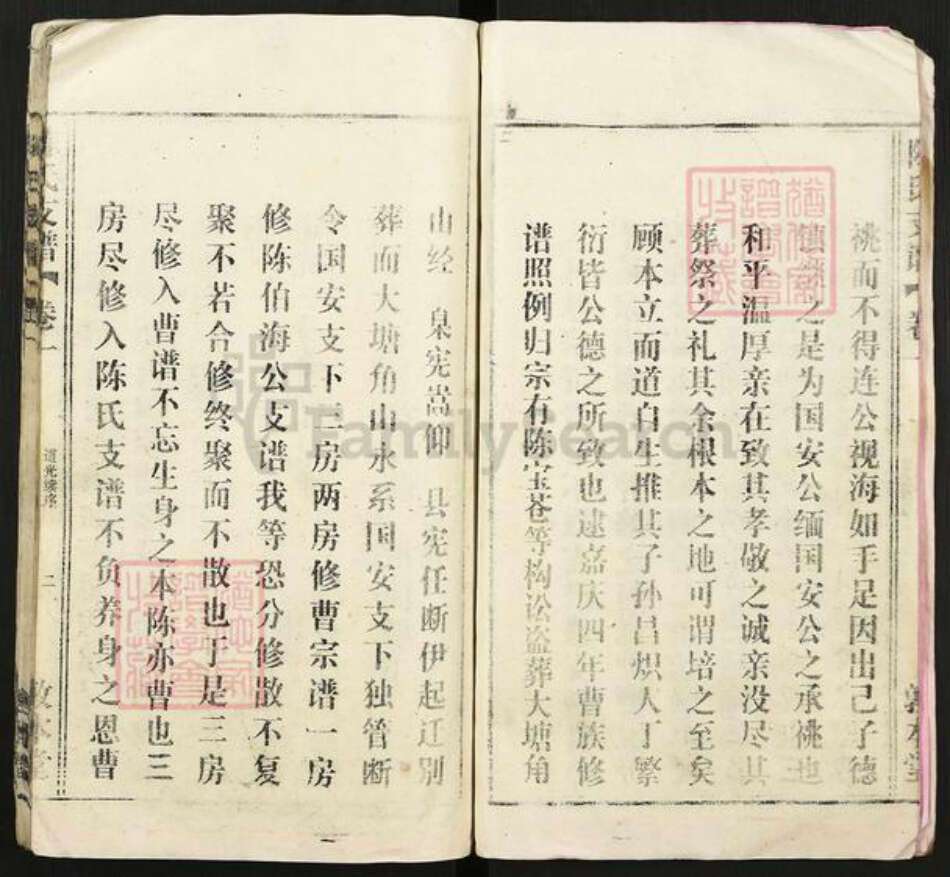 祧而不得连公视海如手足因出己子德
镇 之是为国安公缅国安公之承祧也
和平温厚亲在致其孝敬之诚亲没尽其
葬祭之礼其余根本之地可谓培之至矣
顾本立而道自生推其子孙昌炽人丁繁
衍皆公德之所致也逮嘉庆四年曹族修
谱照例归宗有陈宝苍等构讼盗葬大塘角
山经 臬宪嵩仰 县宪任断伊起迁别
葬而大塘角山永系国安支下独管断
令国安支下三房两房修曹宗谱一房
修陈伯海公支谱我等恐分修散不复
聚不若合修终聚而不散也于是三房
尽修入曹谱不忘生身之本陈亦曹也三
房尽修入陈氏支谱不负养身之恩曹
支谱
卷一
道光续序
二
敦本堂
FamilySearch